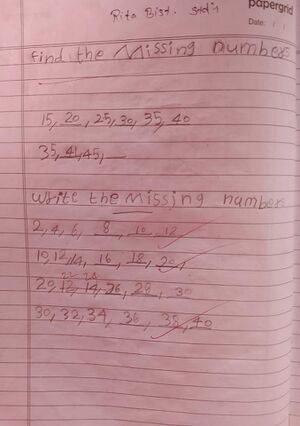 papergrid
Rita Bist.
Date: / /
find the Missing numbers
15, 20, 25, 30, 35, 40
35, 41, 45, __
write the Missing numbers
2, 4, 6, 8, 10, 12
10, 12, 14, 16, 18, 20,
22 24
20, 12, 14, 26, 28, 30
30, 32, 34, 36, 38, 40